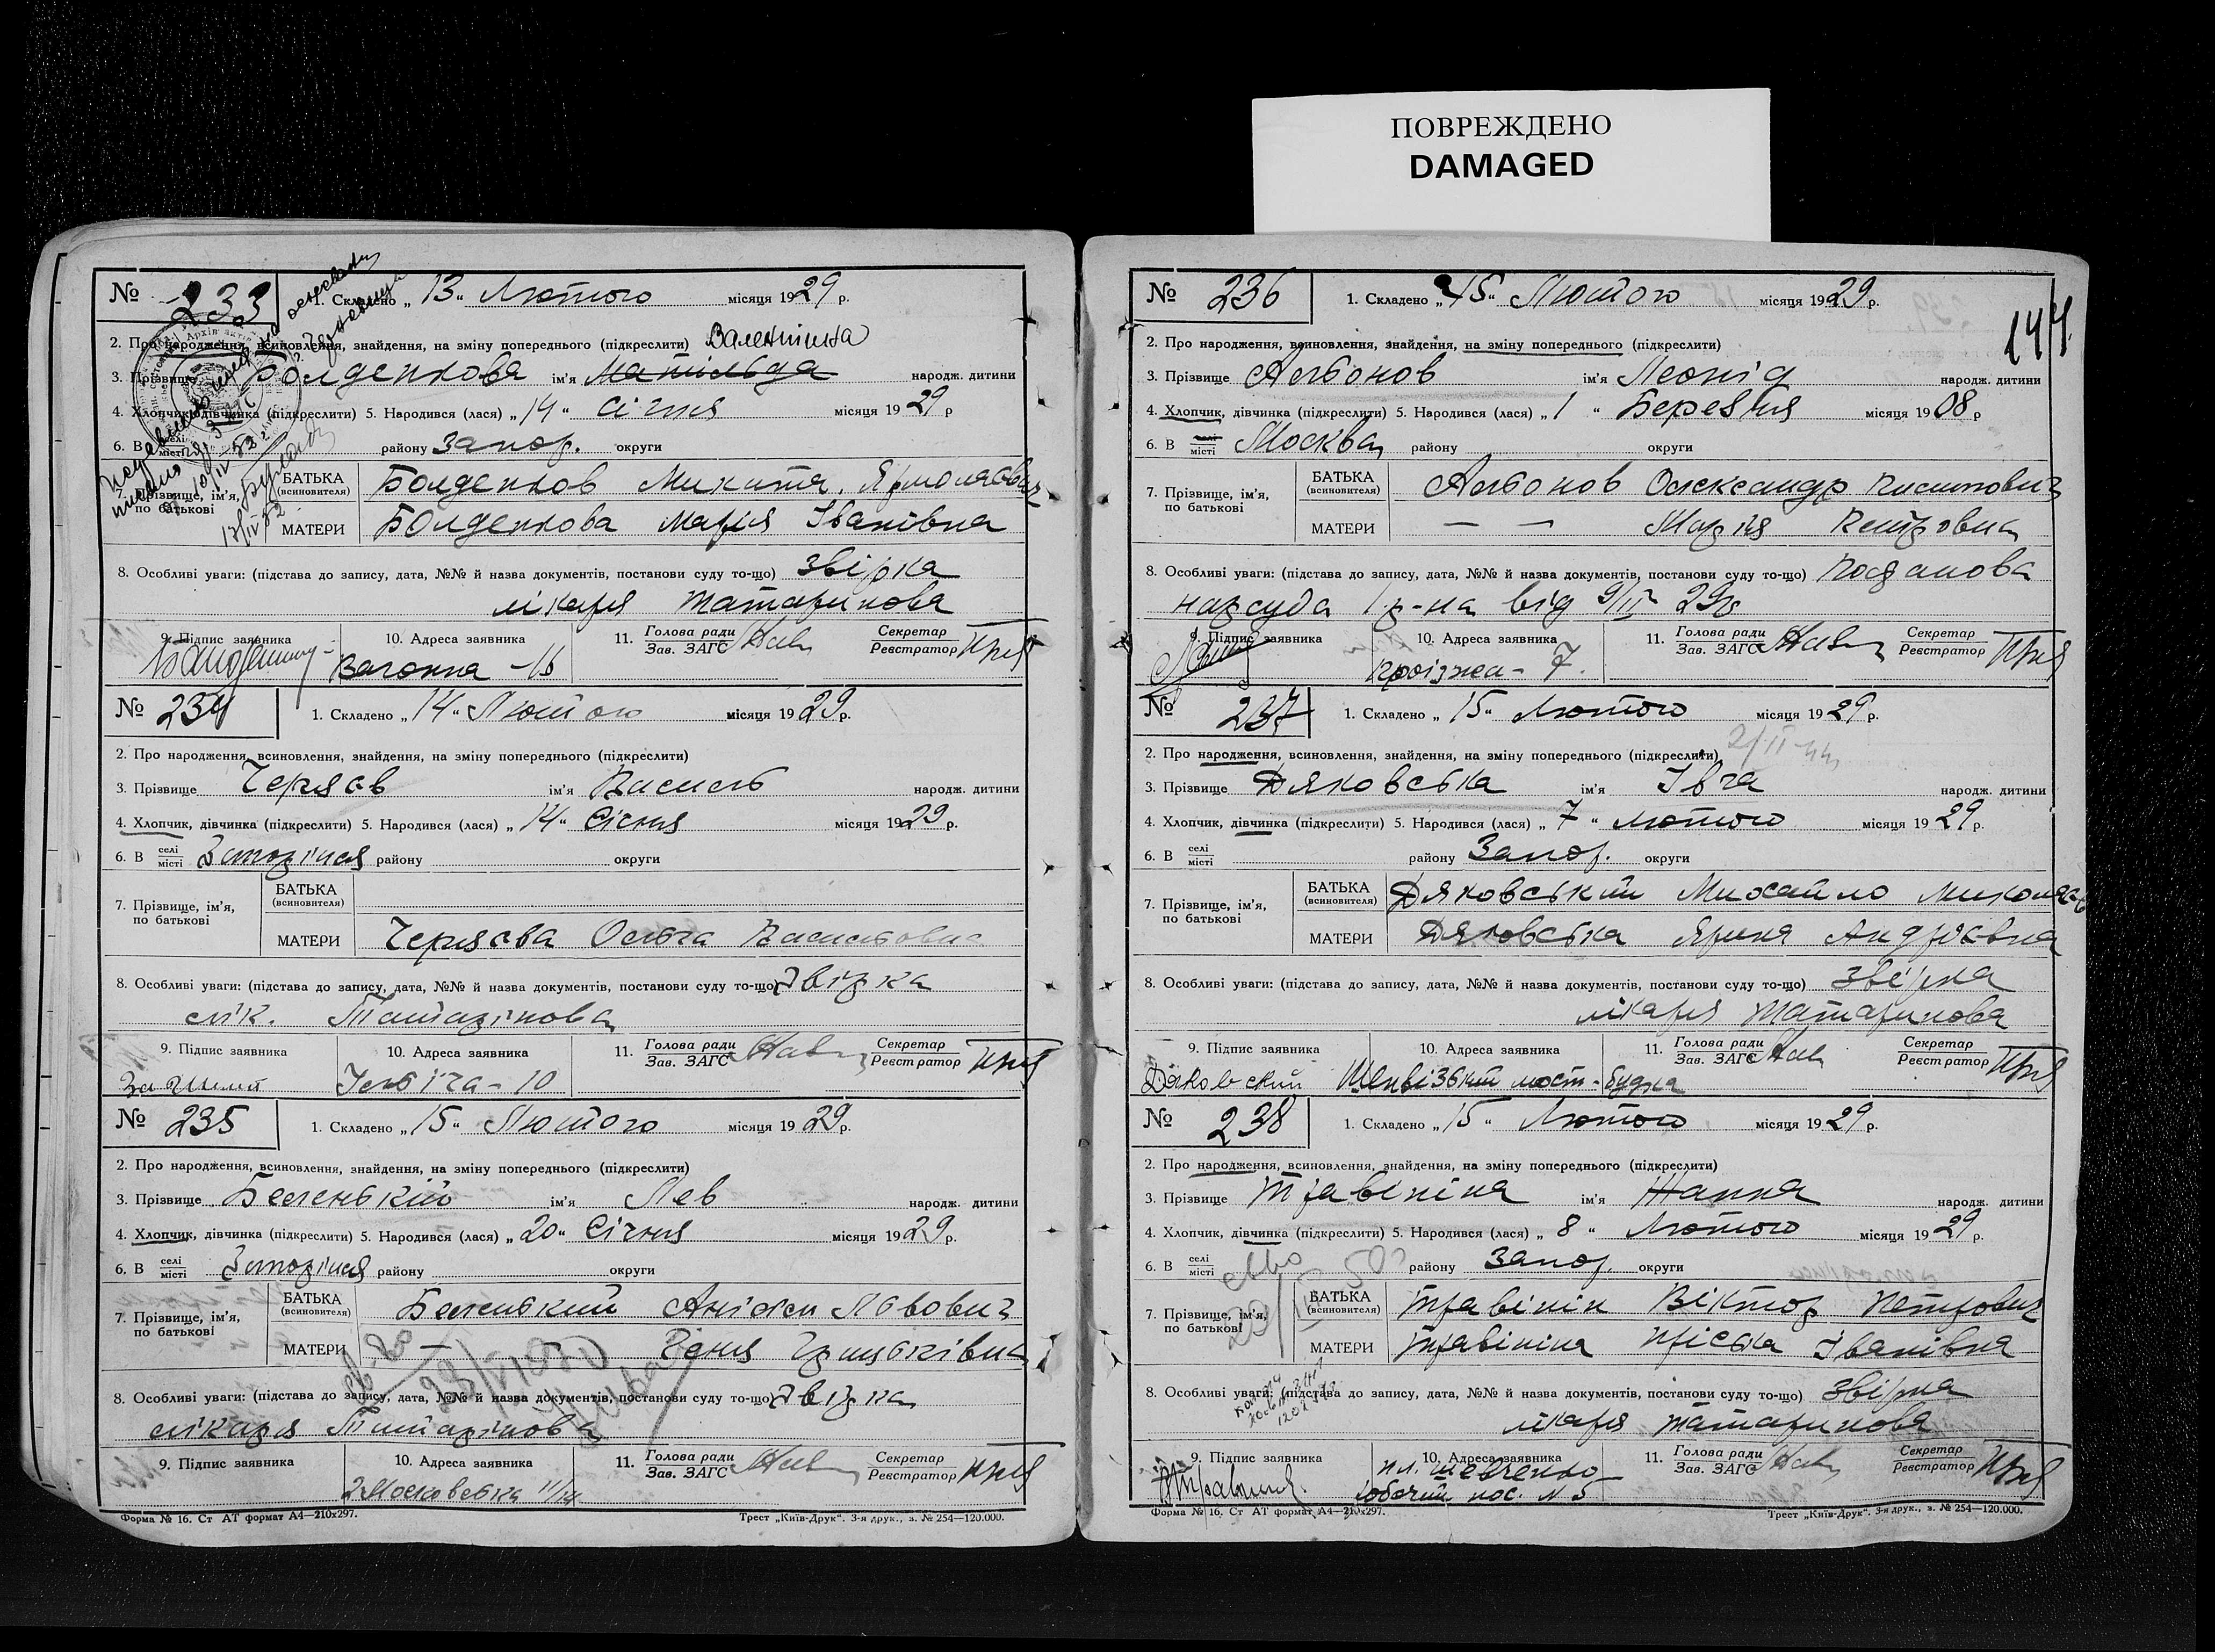 ПОВРЕЖДЕНО
DAMAGED
№ 233
1. Складено „ 13 “ Лютого місяця 1929 р.
2. Про народження, всиновлення, знайдення, на зміну попереднього (підкреслити) Валентіна
3. Прізвище Болденкова ім'я Матільда народж. дитини
4. Хлопчик, дівчинка (підкреслити) 5. Народився (лася) „ 14 “ Січня місяця 1929 р
6. В селі місті району Запор. округи
7. Прізвище, ім'я, по батькові
БАТЬКА (всиновителя) Болденков Микита Ярмолаєвич
МАТЕРИ Болденкова Марія Іванівна
8. Особливі уваги: (підстава до запису, дата, №№ й назва документів, постанови суду то-що) Звірка
лікаря Татарінова
9. Підпис заявника 10. Адреса заявника 11. Голова ради Зав. ЗАГС Секретар Реєстратор
Вагонна - 16
№ 234
1. Складено „ 14 “ Лютого місяця 1929 р.
2. Про народження, всиновлення, знайдення, на зміну попереднього (підкреслити)
3. Прізвище Черяєв ім'я Василь народж. дитини
4. Хлопчик, дівчинка (підкреслити) 5. Народився (лася) „ 14 “ Січня місяця 1929 р.
6. В селі місті Запоріжжя району округи
7. Прізвище, ім'я, по батькові
БАТЬКА (всиновителя)
МАТЕРИ Черяєва Ольга Васильовна
8. Особливі уваги: (підстава до запису, дата, №№ й назва документів, постанови суду то-що) Звірка
лік. Татарінова
9. Підпис заявника 10. Адреса заявника 11. Голова ради Зав. ЗАГС Секретар Реєстратор
Ілліча - 10
№ 235
1. Складено „ 15 “ Лютого місяця 1929 р.
2. Про народження, всиновлення, знайдення, на зміну попереднього (підкреслити)
3. Прізвище Беленькій ім'я Лев народж. дитини
4. Хлопчик, дівчинка (підкреслити) 5. Народився (лася) „ 20 “ Січня місяця 1929 р.
6. В селі місті Запоріжжя району округи
7. Прізвище, ім'я, по батькові
БАТЬКА (всиновителя) Беленький Львович
МАТЕРИ —
8. Особливі уваги: (підстава до запису, дата, №№ й назва документів, постанови суду то-що) Звірка
лікаря Татарінова
9. Підпис заявника 10. Адреса заявника 11. Голова ради Зав. ЗАГС Секретар Реєстратор
2 Московська 11/14
Форма № 16. Ст АТ формат А4—210х297. Трест „Київ-Друк“. 3-я друк., з. № 254—120.000.
144.
№ 236
1. Складено „ 15 “ Лютого місяця 1929 р.
2. Про народження, всиновлення, знайдення, на зміну попереднього (підкреслити)
3. Прізвище Альбонов ім'я Леонід народж. дитини
4. Хлопчик, дівчинка (підкреслити) 5. Народився (лася) „ 1 “ Березня місяця 1908 р
6. В селі місті Москва району округи
7. Прізвище, ім'я, по батькові
БАТЬКА (всиновителя) Альбонов Олександр
МАТЕРИ — — Марія Петровна
8. Особливі уваги: (підстава до запису, дата, №№ й назва документів, постанови суду то-що) Постанова
нарсуда 1 р-на від 9/II 29 р
9. Підпис заявника 10. Адреса заявника 11. Голова ради Зав. ЗАГС Секретар Реєстратор
Проізжа - 7.
№ 237
1. Складено „ 15 “ Лютого місяця 1929 р.
2/II-44
2. Про народження, всиновлення, знайдення, на зміну попереднього (підкреслити)
3. Прізвище Дяковська ім'я Івга народж. дитини
4. Хлопчик, дівчинка (підкреслити) 5. Народився (лася) „ 7 “ Лютого місяця 1929 р.
6. В селі місті району Запор. округи
7. Прізвище, ім'я, по батькові
БАТЬКА (всиновителя) Дяковський Михайло
МАТЕРИ Дяковська Ярина Андрієвна
8. Особливі уваги: (підстава до запису, дата, №№ й назва документів, постанови суду то-що) Звірка
лікаря Татарінова
9. Підпис заявника 10. Адреса заявника 11. Голова ради Зав. ЗАГС Секретар Реєстратор
Дяковский мост - будка
№ 238
1. Складено „ 15 “ Лютого місяця 1929 р.
2. Про народження, всиновлення, знайдення, на зміну попереднього (підкреслити)
3. Прізвище Травініна ім'я Жанна народж. дитини
4. Хлопчик, дівчинка (підкреслити) 5. Народився (лася) „ 8 “ Лютого місяця 1929 р.
6. В селі місті району Запор. округи
7. Прізвище, ім'я, по батькові
БАТЬКА (всиновителя) Травінін Віктор Петрович
МАТЕРИ Травініна Пріська Іванівна
8. Особливі уваги: (підстава до запису, дата, №№ й назва документів, постанови суду то-що) Звірка
лікаря Татарінова
9. Підпис заявника 10. Адреса заявника 11. Голова ради Зав. ЗАГС Секретар Реєстратор
пл. Шевченко
робочий пос. № 5
Форма № 16. Ст АТ формат А4—210х297. Трест „Київ-Друк“. 3-я друк., з. № 254—120.000.